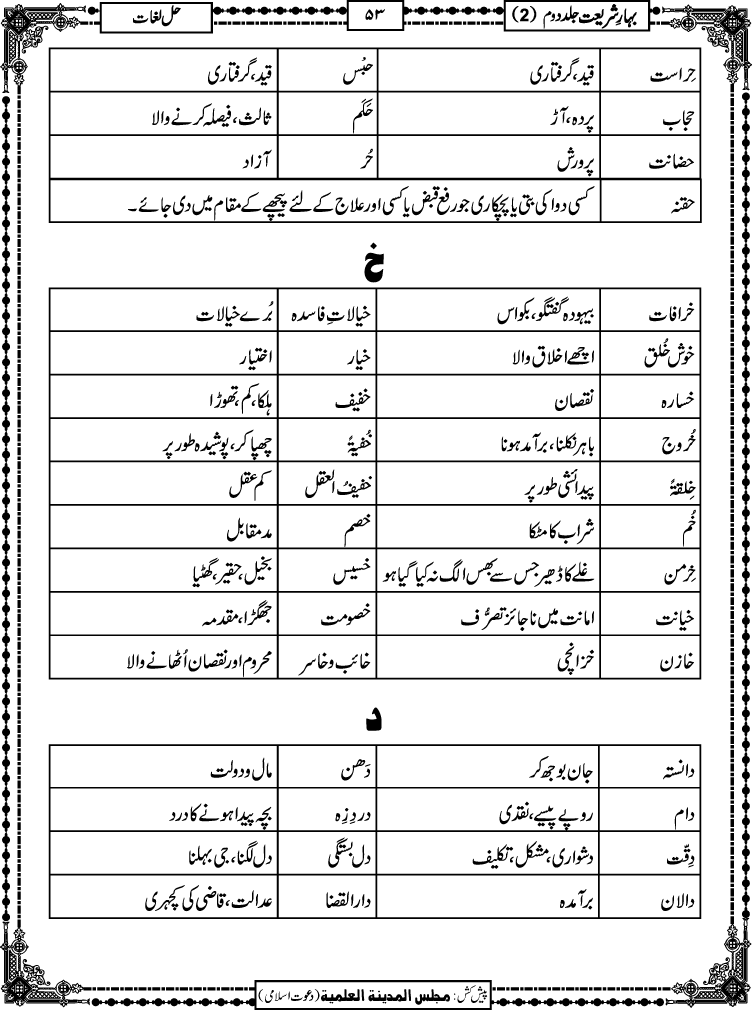 بہارِ شریعت جلد دوم (2) ۵۳ حل لغات
حِراست قید، گرفتاری حبْس قید، گرفتاری
حجاب پردہ، آڑ حَکَم ثالث، فیصلہ کرنے والا
حضانت پرورش حُر آزاد
حقنہ کسی دوا کی بتی یا پچکاری جو رفع قبض یا کسی اور علاج کے لئے پیچھے کے مقام میں دی جائے۔
خ
خرافات بیہودہ گفتگو، بکواس خیالاتِ فاسدہ بُرے خیالات
خوش خُلق اچھے اخلاق والا خیار اختیار
خسارہ نقصان خفیف ہلکا، کم، تھوڑا
خُروج باہر نکلنا، برآمد ہونا خُفیۃً چھپا کر، پوشیدہ طور پر
خِلقۃً پیدائشی طور پر خفیفُ العقل کم عقل
خُم شراب کا مٹکا خصم مدمقابل
خِرمن غلے کا ڈھیر جس سے بھس الگ نہ کیا گیا ہو خسیس بخیل، حقیر، گھٹیا
خیانت امانت میں ناجائز تصرُّف خصومت جھگڑا، مقدمہ
خازن خزانچی خائب و خاسر محروم اور نقصان اُٹھانے والا
د
دانستہ جان بوجھ کر دَھن مال و دولت
دام روپے پیسے، نقدی دردِ زِہ بچہ پیدا ہونے کا درد
دِقّت دشواری، مشکل، تکلیف دل بستگی دل لگنا، جی بہلنا
دالان برآمدہ دارالقضا عدالت، قاضی کی کچہری
پیش کش: مجلس المدینۃ العلمیۃ (دعوت اسلامی)